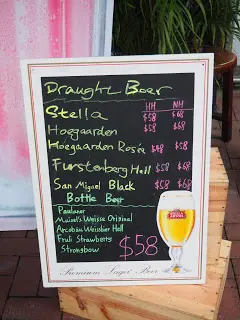 Draught Beer
HH NH
Stella $58 $68
Hoegaarden $58 $68
Hoegaarden Rosée $48 $68
Furstenberg Hell $58 $68
San Miguel Black $58 $68
Bottle Beer
Paulaner
Maisel's Weisse Original
Arcobäu Weissbier Hell
Fruli Strawberry
Strongbow
$58
Premium Lager Beer